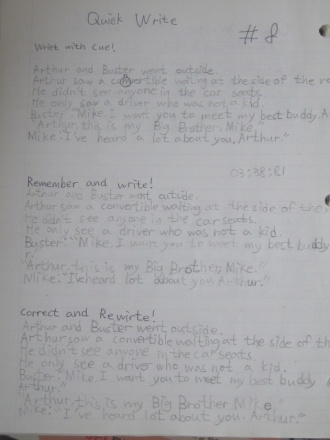 Quick Write
#8
Wriet with Cue!
Arthur and Buster went outside.
Arthur saw a convertible waiting at the side of the
He didn't see anyone in the car seats.
He only saw a driver who was not a kid.
Buster: Mike. I want you to meet my best buddy. A
"Arthur. this is my Big Brother. Mike.
Mike: I've heard a lot about you, Arthur."
03:38:81
Remember and write!
Arthur and Buster went outside.
Arthur saw a convertible waiting at the side of the
He didn't see anyone in the car seats.
He only saw a driver who was not a kid.
Buster: "Mike. I want you to meet my best buddy
r.
"Arthur. this is my Big Brother, Mike."
Mike: "I've heard lot about you Arthur."
Correct and Rewirte!
Arthur and Buster went outside.
Arthur saw a convertible waiting at the side of th
He didn't see anyone in the car seats.
He only saw a driver who was not a kid.
Buster: Mike. I want you to meet my best buddy A
Arthur.
"Arthur, this is my Big Brother Mike."
Mike: "I've heard lot about you. Arthur."